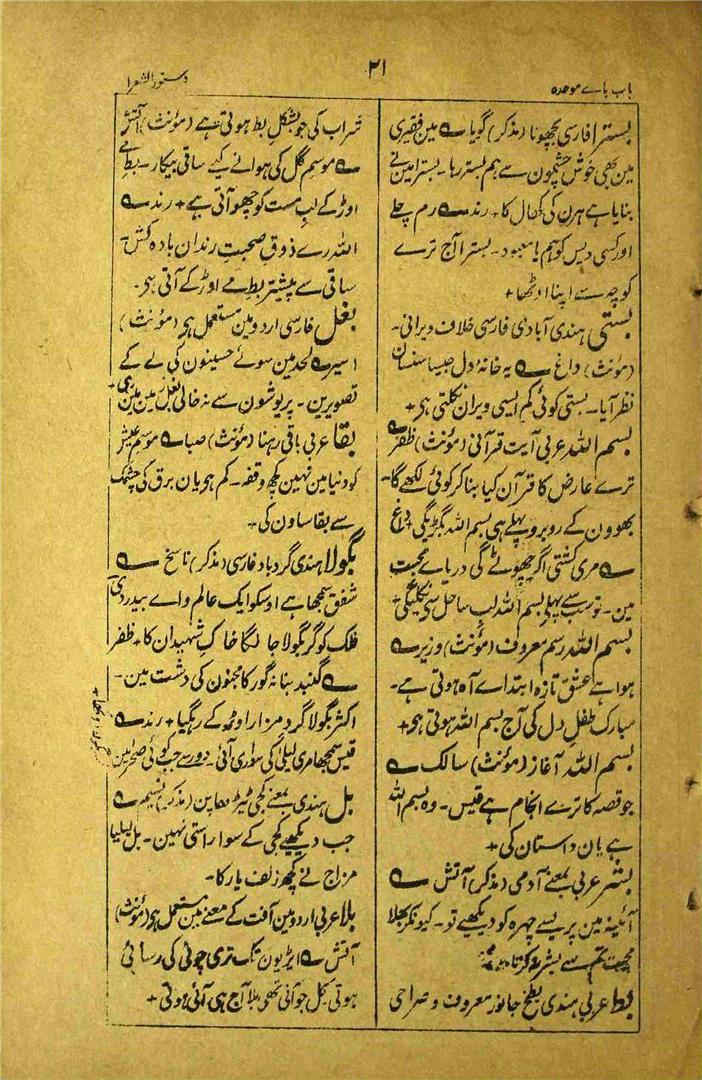 باب باے موحدہ
۲۱
دستور الشعرا
بسترا فارسی بچھونا (مذکر) گویا ؎ مین فقیری
مین بھی خوش چشمون سے ہم بستر رہا۔ بسترا مین نے
بنایا ہے ہرن کی کھال کا + رند ؎ رم چلے
اور کسی دیس کو ہم یا معبود۔ بسترا آج ترے
کوچہ سے اپنا اوٹھا +
بستی ہندی آبادی فارسی خلاف ویرانی۔
(مؤنث) داغ ؎ یہ خانۂ دل جیسا سنسان
نظر آیا۔ بستی کوئی کم ایسی ویران نکلتی ہی +
بسم اللہ عربی آیت قرآنی (مؤنث) ظفر ؎
ترے عارض کا قرآن کیا بنا کر کوئی لکھے گا۔
بھوون کے روبرو پہلے ہی بسم اللہ بگڑیگی + داغ
؎ مری کشتی اگر چھوٹے گی دریاے محبت
مین۔ تو سب سے پہلی بسم اللہ لب ساحل سی نکلیگی +
بسم اللہ رسم معروف (مؤنث) وزیر ؎
ہوا ہے عشق تازہ ابتداے آہ ہوتی ہے۔
مبارک طفل دل کی آج بسم اللہ ہوتی ہی +
بسم اللہ آغاز (مؤنث) سالک ؎
جو قصہ کا ترے انجام ہے قیس۔ وہ بسم اللہ
ہے یان داستان کی +
بشر عربی بمعنے آدمی (مذکر) آتش ؎
آئینہ مین پریسے چہرہ کو دیکھیے تو۔ کیونکر بھلا
محبت تم سے بشر نہ کرتا
بط عربی ہندی بطخ جانور معروف و صراحی
شراب کی جو بشکل بط ہوتی ہے (مؤنث) آتش
؎ موسم گل کی ہوانے کیے ساقی بیکار۔ بط مے
اوڑ کے لب مست کو چھو آتی ہے + رند ؎
اللہ رے ذوق صحبت رندان بادہ کش۔
ساقی سے پیشتر بط مے اوڑ کے آتی ہی۔
بغل فارسی اردو مین مستعمل ہی (مؤنث)
اسیر ؎ لحد مین سوئے حسینون کی لے کے
تصویرین۔ پریوشون سے نہ خالی بغل مین مین رہی +
بقا عربی باقی رہنا (مؤنث) صبا ؎ موسم عیش
کو دنیا مین نہین کچھ وقفہ۔ کم ہو یان برق کی چشمک
سے بقا ساون کی +
بگولا ہندی گردباد فارسی (مذکر) ناسخ ؎
شفق سمجھا ہے اوسکو ایک عالم واے بیدردی
فلک کو گر بگولا جا لگا خاک شہیدان کا + ظفر
؎ گنبد بنا نہ گور کا مجنون کی دشت مین۔
اکثر بگولا گرد مزار اوٹھ کے رہگیا + رند ؎
قیس سمجھا مری لیلیٰ کی سواری آئی۔ دور سے جب کوئی صحرا مین
بل ہندی بمعنے کجی ٹیڑھاپن (مذکر) نسیم ؎
جب دیکھیے کجی کے سوا راستی نہین۔ بل لیلیا
مزاج نے کچھ زلف یار کا۔
بلا عربی اردو مین آفت کے معنے مین مستعمل ہی (مؤنث)
آتش ؎ ایڑیون تک تری چوٹی کی رسائی
ہوتی کل جو آنی تھی بلا آج ہی آئی ہوتی +